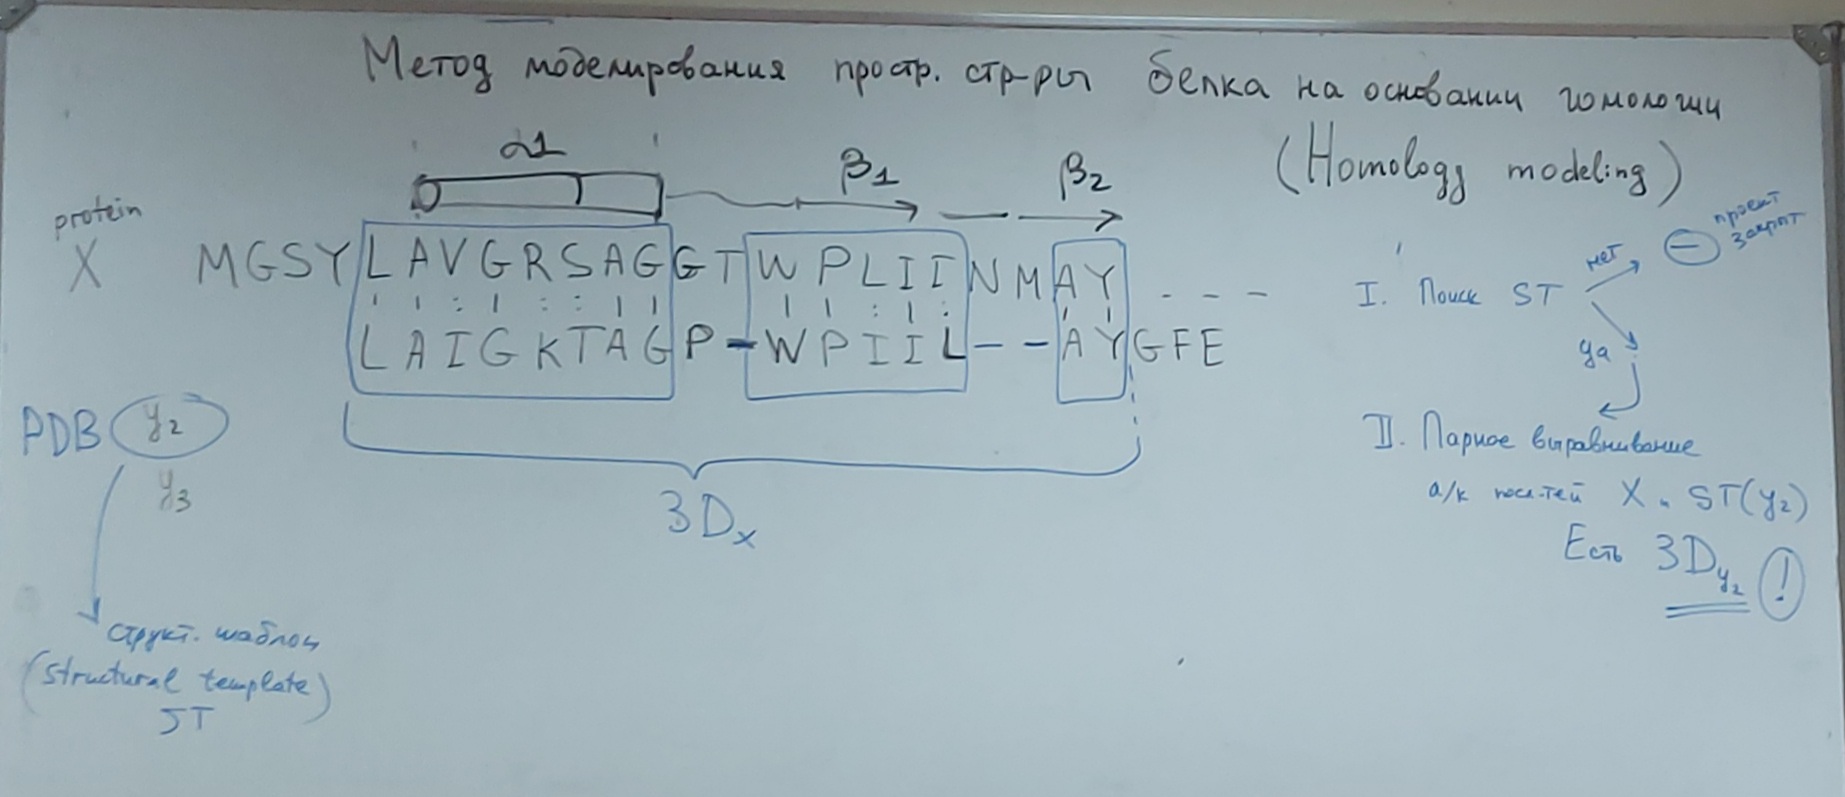 Метод моделирования простр. стр-ры белка на основании гомологии
(Homology modeling)
α1
β1
β2
protein
X
MGSYLAVGRSAGGTWPLIINMAY - - -
LAIGKTAGP-WPIIL--AYGFE
3Dx
PDB y2
y3
структ. шаблон
(structural template)
ST
I. Поиск ST
нет
⊖ проект
закрыт
да
II. Парное выравнивание
а/к посл-тей X и ST(y2)
Есть 3Dy2 !